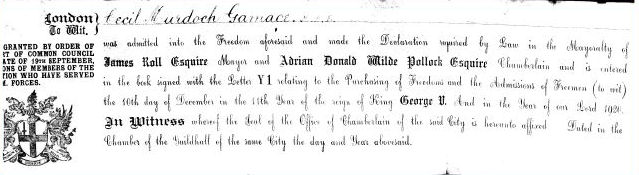 London
To Wit.
GRANTED BY ORDER OF
RT OF COMMON COUNCIL
ATE OF 19TH SEPTEMBER,
ONS OF MEMBERS OF THE
TION WHO HAVE SERVED
L FORCES.
Cecil Murdoch Gamage
was admitted into the Freedom aforesaid and made the Declaration required by Law in the Mayoralty of
James Roll Esquire Mayor and Adrian Donald Wilde Pollock Esquire Chamberlain and is entered
in the book signed with the Letter Y1 relating to the Purchasing of Freedoms and the Admissions of Freemen (to wit)
the 10th day of December in the 11th Year of the reign of King George V. And in the Year of our Lord 1920.
In Witness whereof the Seal of the Office of Chamberlain of the said City is hereunto affixed Dated in the
Chamber of the Guildhall of the same City the day and Year abovesaid.